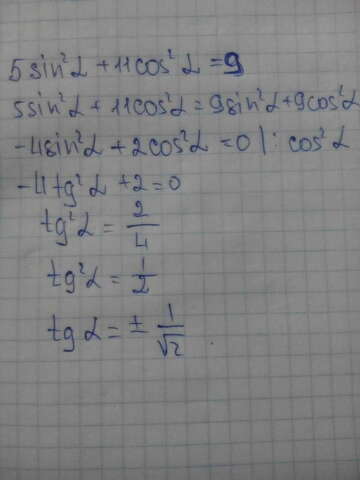 5sin²α + 11cos²α = 9
5sin²α + 11cos²α = 9sin²α + 9cos²α
-4sin²α + 2cos²α = 0 | : cos²α
-4tg²α + 2 = 0
tg²α = 2/4
tg²α = 1/2
tgα = ± 1/√2